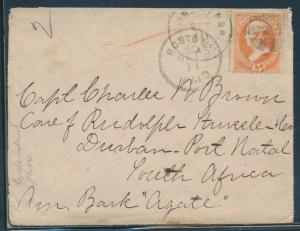 BOSTON
11
Capt Charles W. Brown
Care of Rudolph & Co
Durban - Port Natal
South Africa
Am. Bark "Agate"